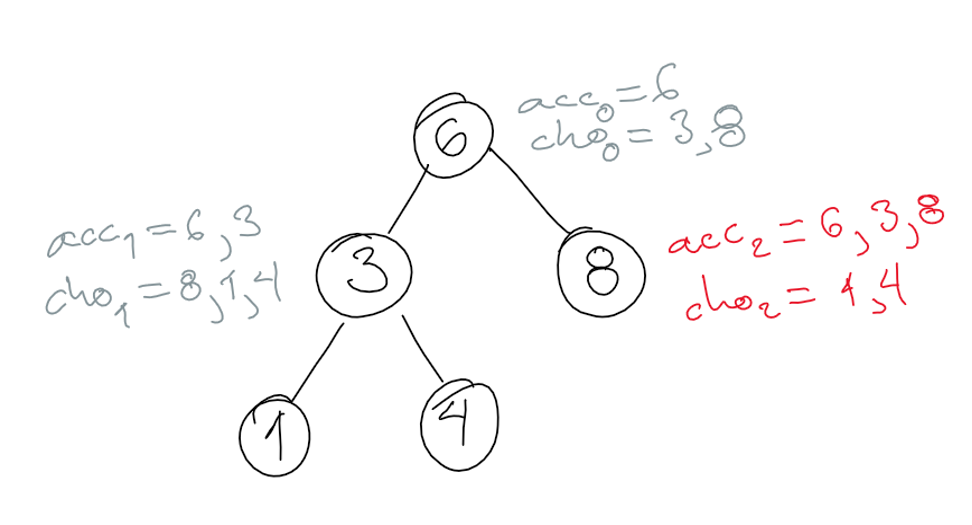 acc₀ = 6
cho₀ = 3,8
6
acc₁ = 6,3
cho₁ = 8,1,4
3
8
acc₂ = 6,3,8
cho₂ = 1,4
1
4